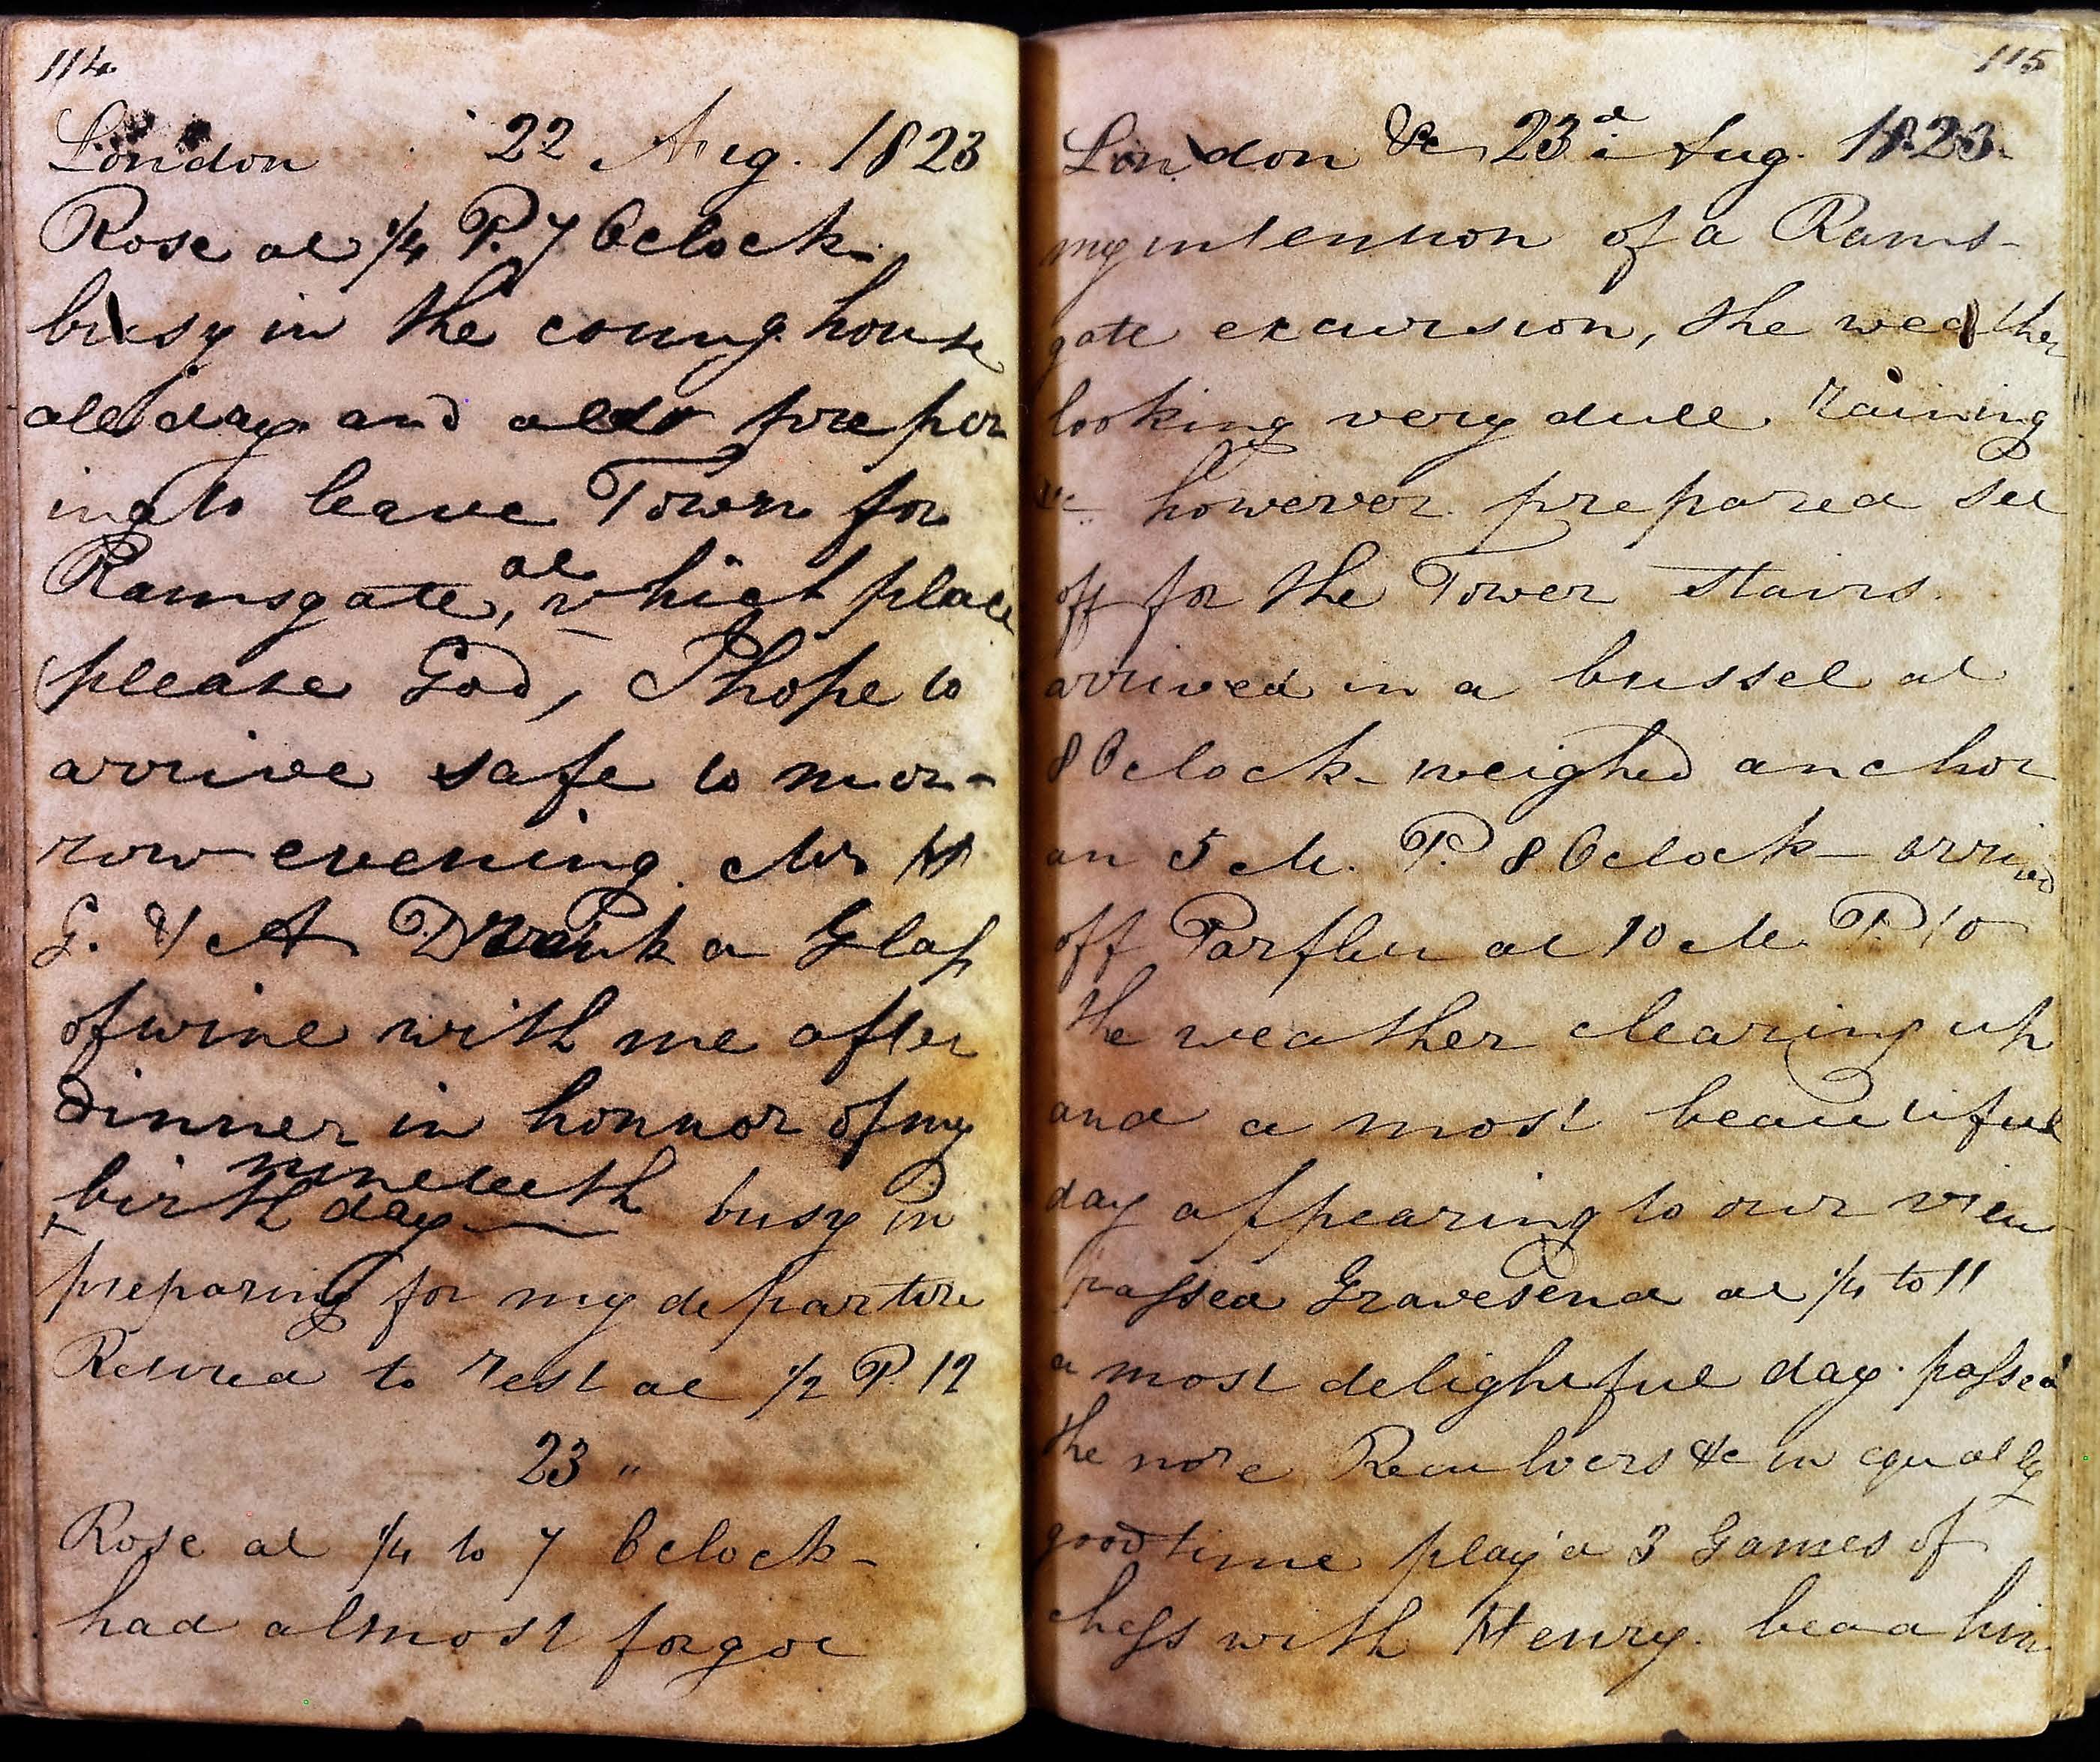 114
London 22 Aug. 1823
Rose at 1/4 P. 7 Oclock
busy in the coung. house
all day and also prepar
ing to leave Town for
at
Ramsgate, which place
please God, I hope to
arrive safe to mor-
row evening. Mr H
G. & A Drank a Glass
of wine with me after
dinner in honnor of my
nineteeth
birth day busy in
preparing for my departure
Retired to rest at 1/2 P. 12
23 "
Rose at 1/4 to 7 Oclock-
had almost forgot
115
London &c 23d Aug. 1823
my intention of a Rams-
gate excursion, the weather
looking very dull raining
&c however prepared set
off for the Tower stairs.
arrived in a bussel at
8 Oclock - weighed anchor
an 5 M. P. 8 Oclock - arrived
off Parfleu at 10 M. P. 10
the weather clearing up
and a most beautiful
day appearing to our view
passed Gravesend at 1/4 to 11
a most delightful day. passed
the nore Reculvers &c in equally
good time play'd 3 Games of
chess with Henry. beat him